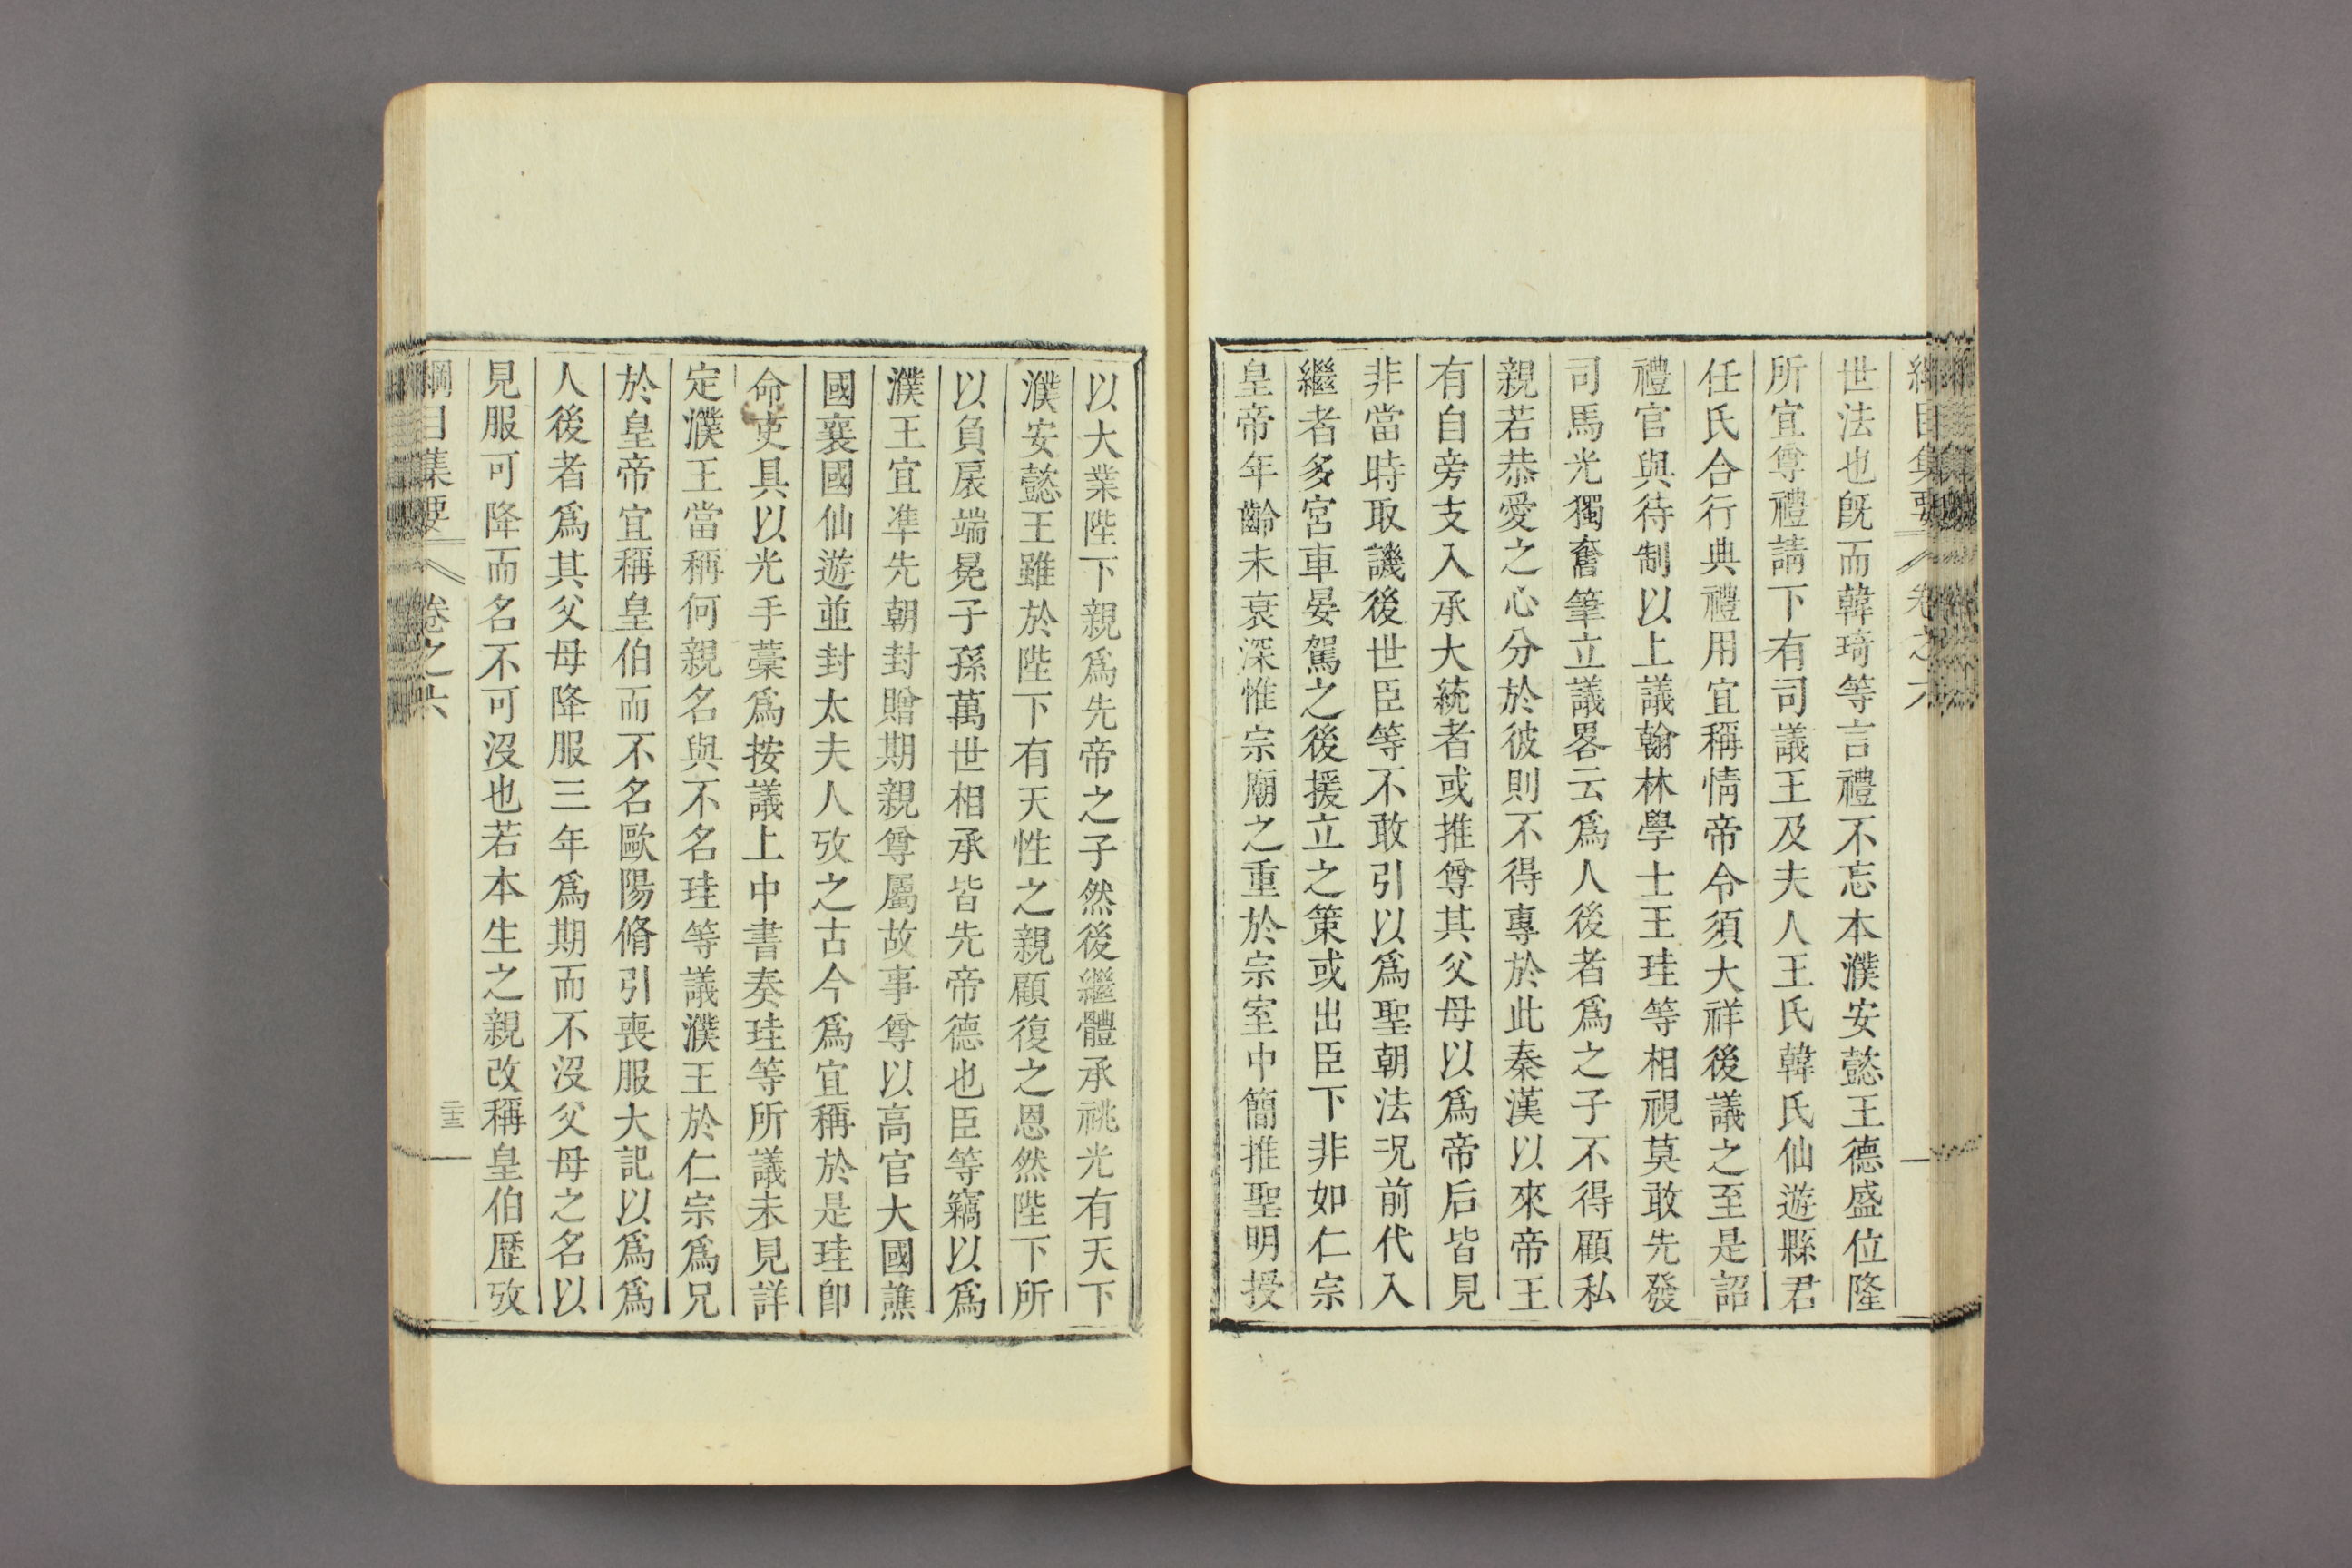 綱目集要 卷之六
世法也旣而韓琦等言禮不忘本濮安懿王德盛位隆
所宜尊禮請下有司議王及夫人王氏韓氏仙遊縣君
任氏合行典禮用宜稱情帝令須大祥後議之至是詔
禮官與待制以上議翰林學士王珪等相視莫敢先發
司馬光獨奮筆立議畧云爲人後者爲之子不得顧私
親若恭愛之心分於彼則不得專於此秦漢以來帝王
有自旁支入承大統者或推尊其父母以爲帝后皆見
非當時取譏後世臣等不敢引以爲聖朝法况前代入
繼者多宮車晏駕之後援立之策或出臣下非如仁宗
皇帝年齡未衰深惟宗廟之重於宗室中簡推聖明授
以大業陛下親爲先帝之子然後繼體承祧光有天下
濮安懿王雖於陛下有天性之親顧復之恩然陛下所
以負扆端冕子孫萬世相承皆先帝德也臣等竊以爲
濮王宜準先朝封贈期親尊屬故事尊以高官大國譙
國襄國仙遊並封太夫人攷之古今爲宜稱於是珪卽
命吏具以光手藁爲按議上中書奏珪等所議未見詳
定濮王當稱何親名與不名珪等議濮王於仁宗爲兄
於皇帝宜稱皇伯而不名歐陽脩引喪服大記以爲爲
人後者爲其父母降服三年爲期而不沒父母之名以
見服可降而名不可沒也若本生之親改稱皇伯歷攷
綱目集要 卷之六 二十三